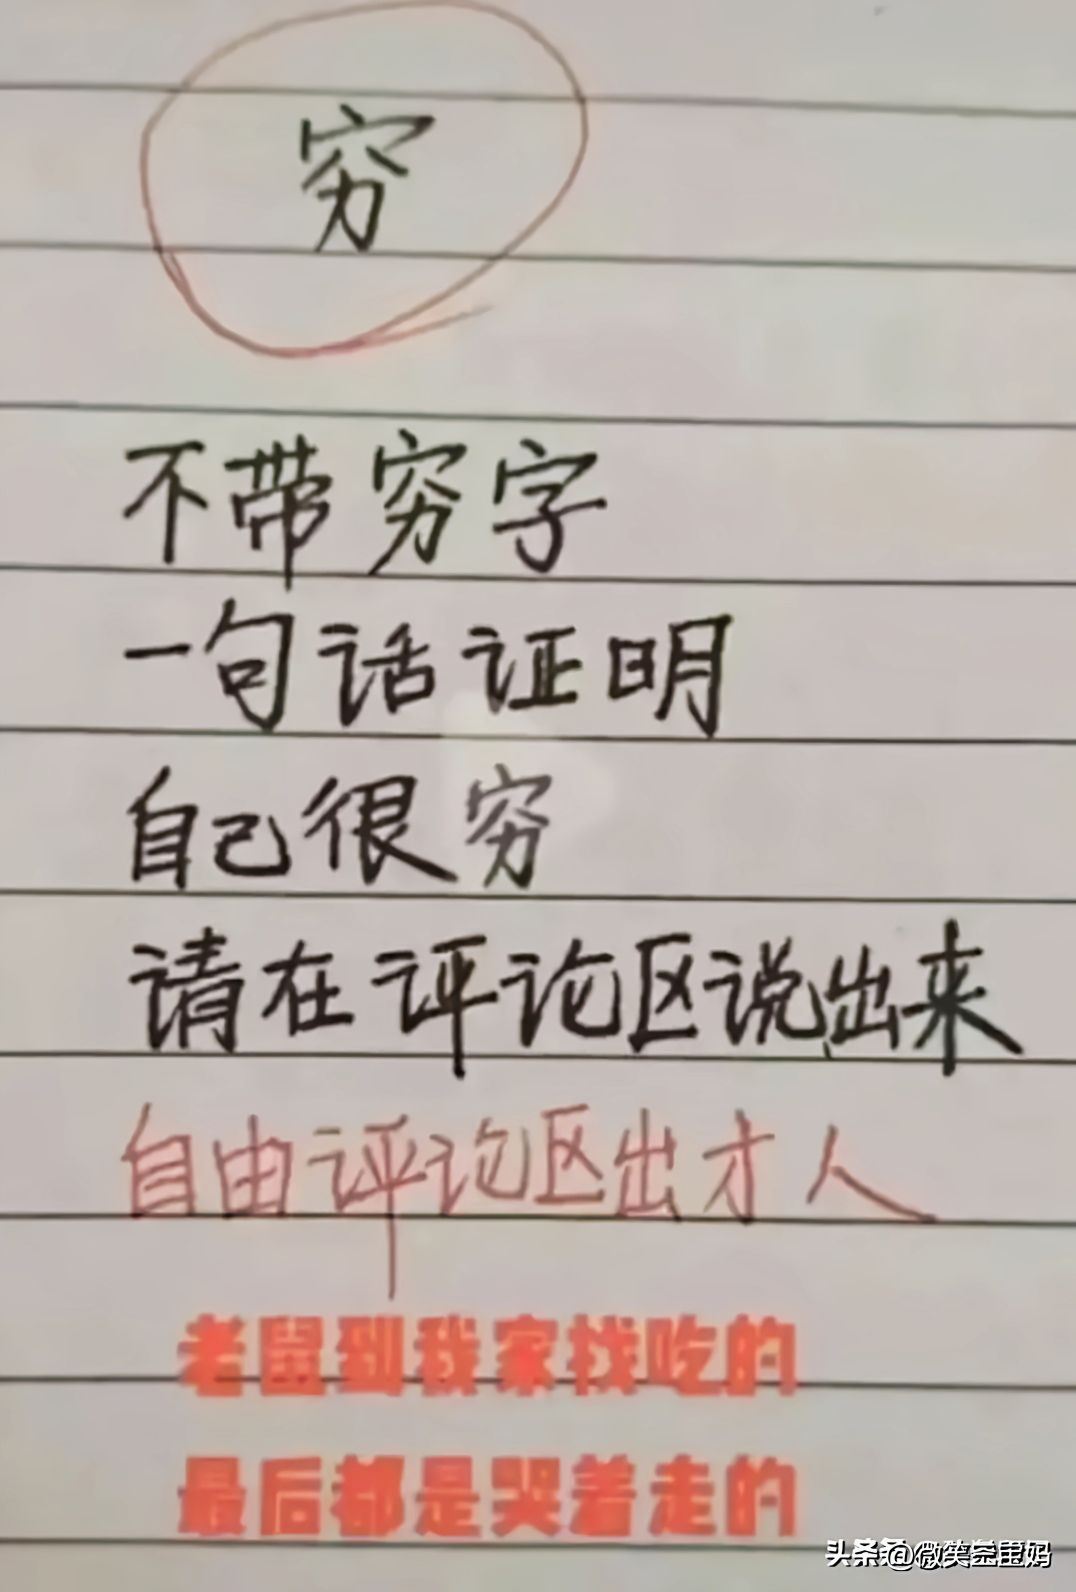 穷
不带穷字
一句话证明
自己很穷
请在评论区说出来
自由评论区出才人
老鼠到我家找吃的
最后都是哭着走的
头条 @微笑